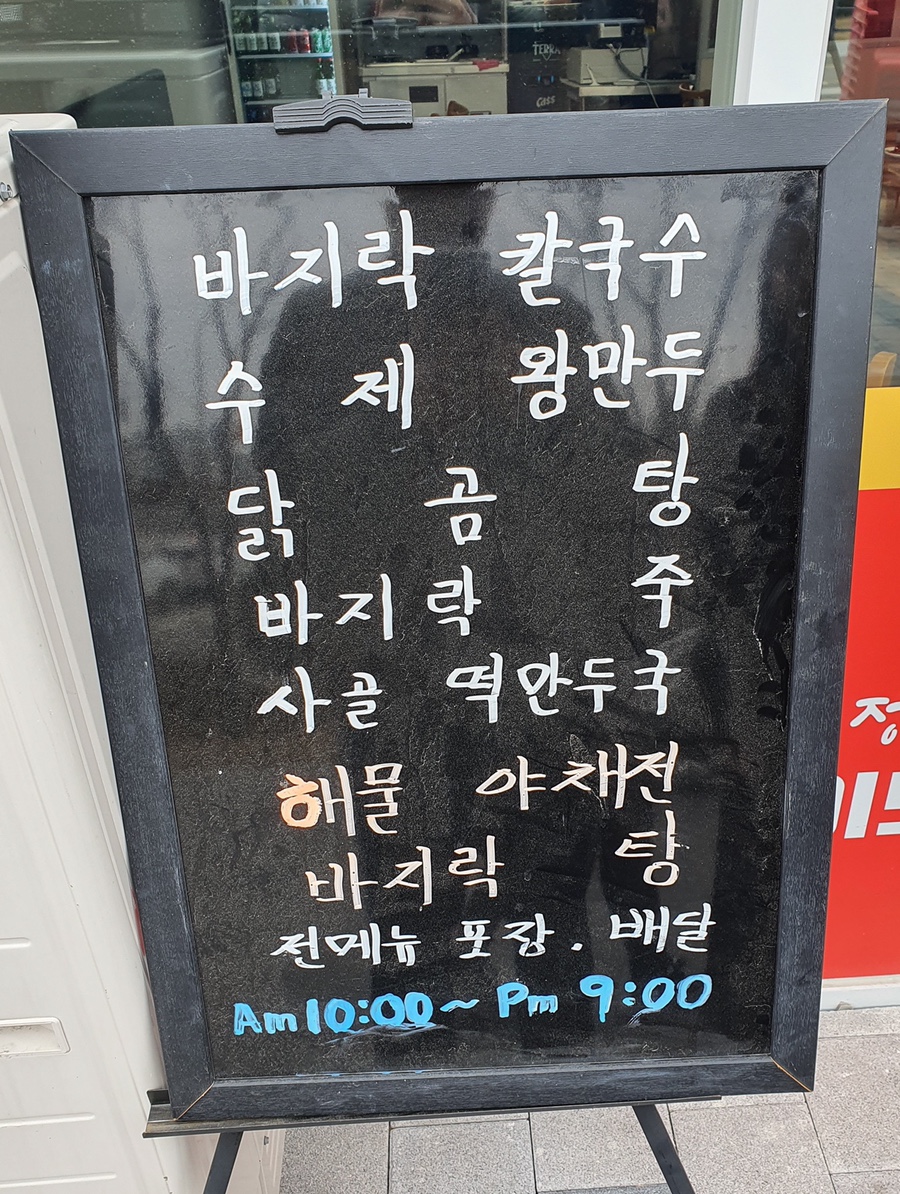 TERRA
Cass
바지락 칼국수
수 제 왕만두
닭 곰 탕
바지락 죽
사골 떡만두국
해물 야채전
바지락 탕
전메뉴 포장 . 배달
Am 10:00 ~ Pm 9:00